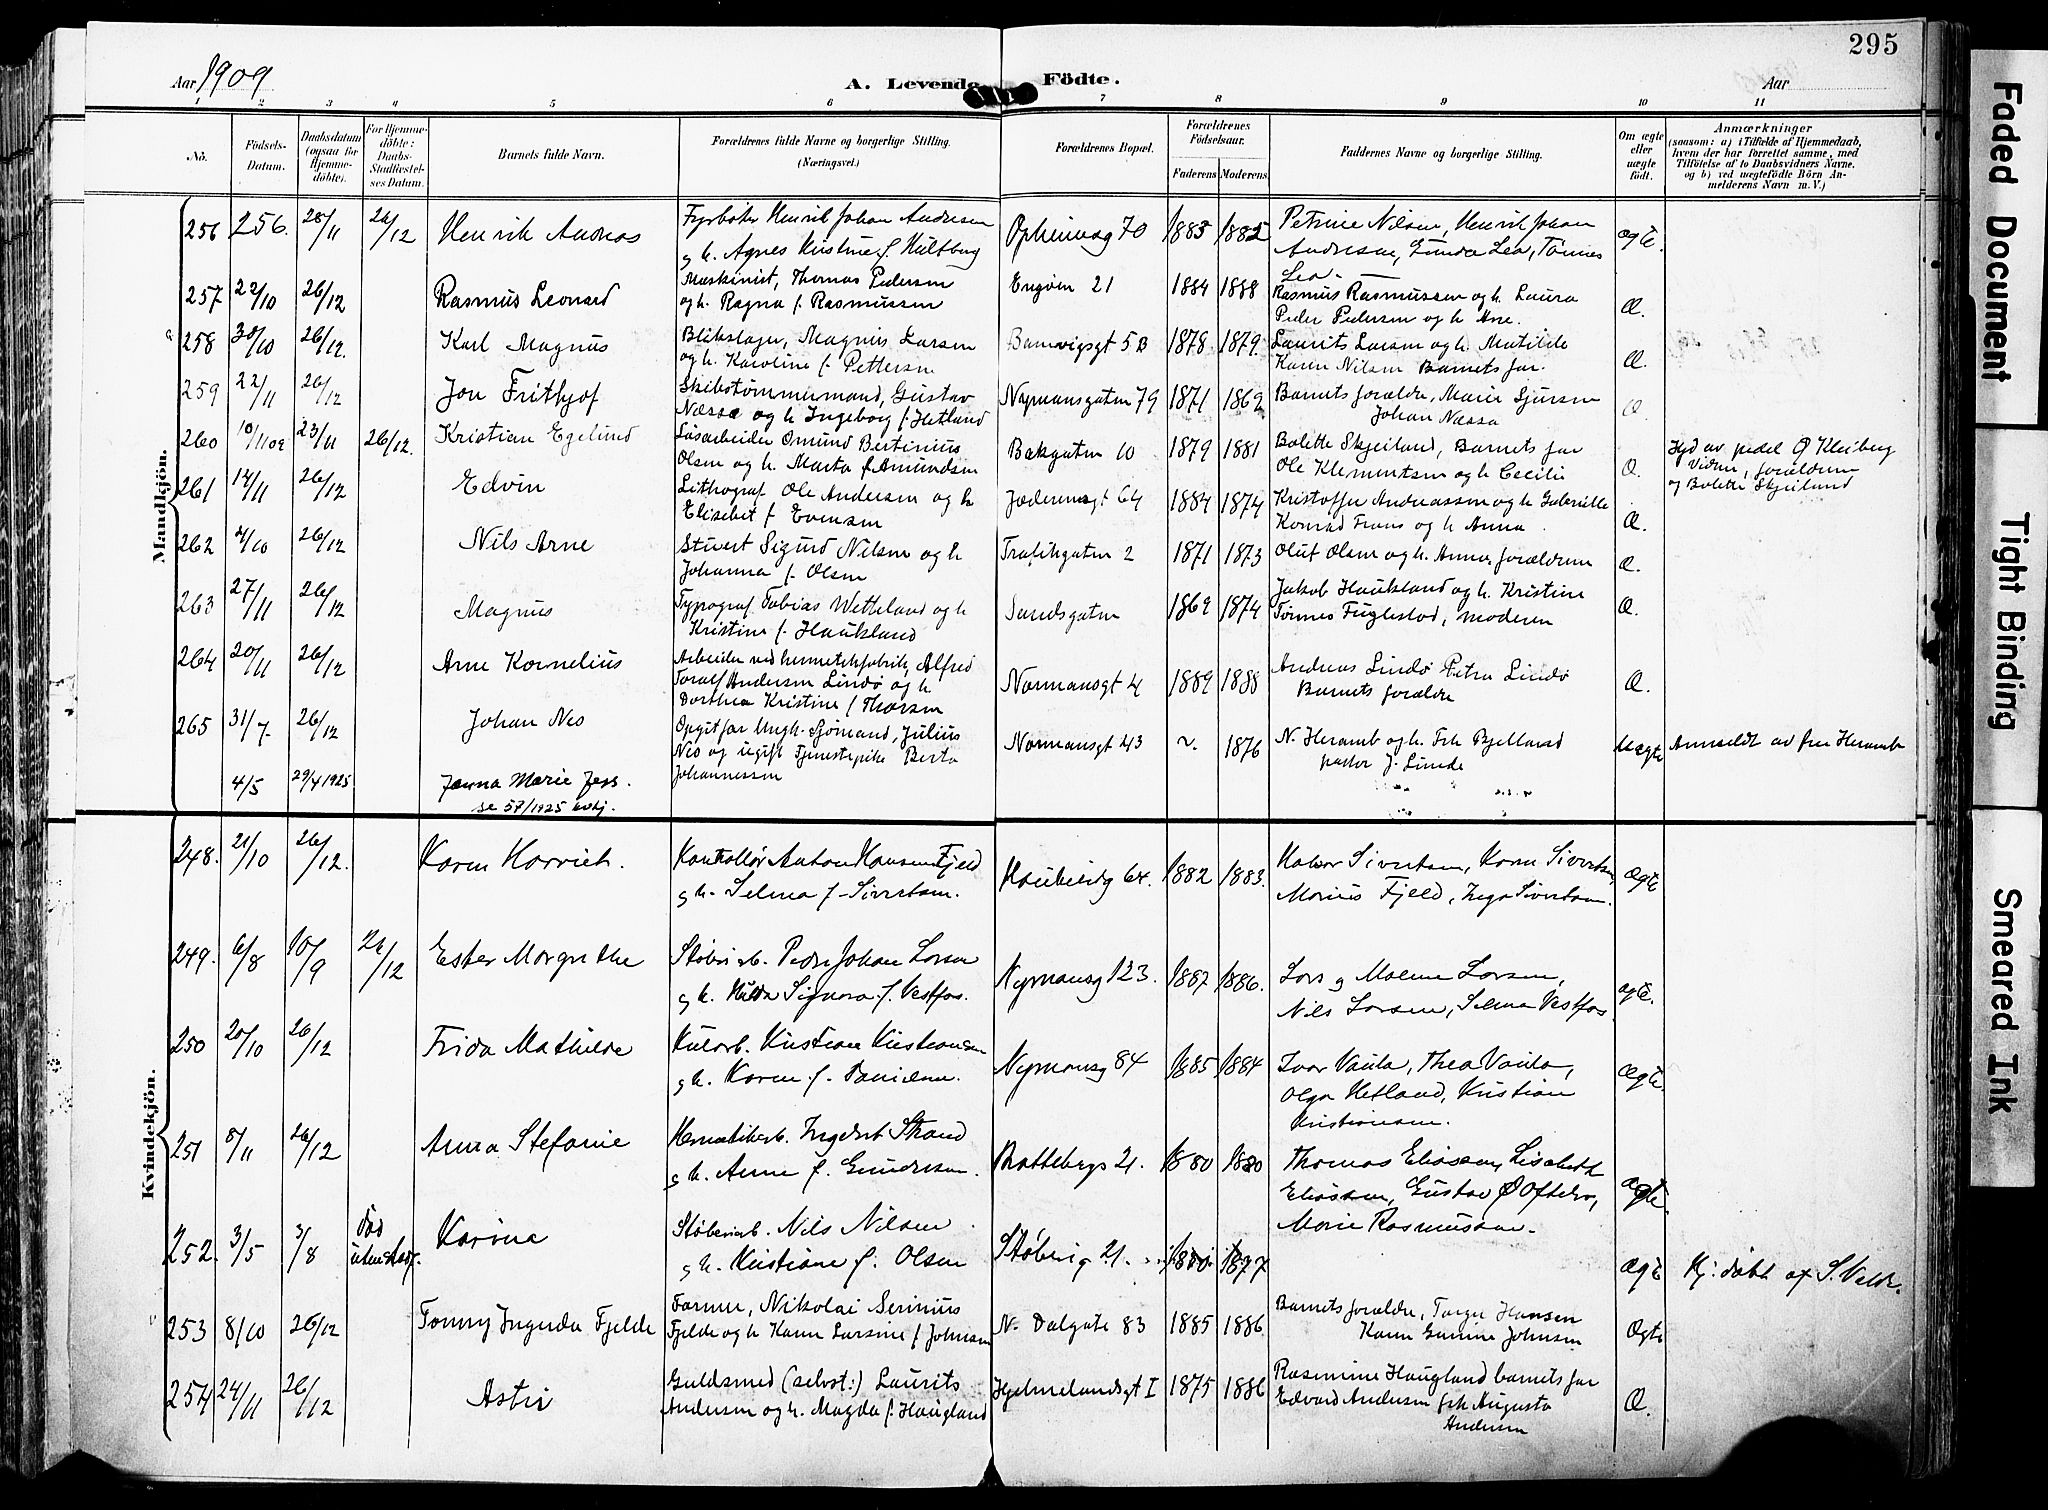 295
Aar 1909
A. Levende Födte.
Aar
1 2 3 4 5 6 7 8 9 10 11
No.
Födsels-Datum.
Daabsdatum (ogsaa for Hjemme-döbte).
For Hjemme-döbte: Daabs-Stadfæstel-ses Datum.
Barnets fulde Navn.
Forældrenes fulde Navne og borgerlige Stilling.
(Næringsvei.)
Forældrenes Bopæl.
Forældrenes Födselsaar.
Faderens Moderens
Faddernes Navne og borgerlige Stilling.
Om ægte eller uægte født.
Anmærkninger
(saasom: a) i Tilfælde af Hjemmedaab,
hvem der har forrettet samme, med
Tilföielse af to Daabsvidners Navne,
og b) ved uægtefödte Börn An-
melderens Navn m. V.)
Mandkjön.
256 256. 28/11 26/12 Henrik Andreas
Fyrböter Henrik Johan Andresen
g h. Agnes Kristine f. Hultberg
70 1883 1882
Petrine Nilsen, Henrik Johan
Andresen, Gunda Lea, Tønnes
Lea
ægte.
257 22/10 26/12 Rasmus Leonard
Maskinist, Thomas Pedersen
og h. Ragna f. Rasmussen
Engvien 21 1884 1888
Rasmus Rasmussen og h. Laura
Peder Pedersen og h. Ane.
Æ.
258 30/10 26/12. Karl Magnus
Blikslager, Magnus Larsen
og h. Karoline f. Pettersen
Banevigsgt 5B 1878 1879.
Laurits Larsen og h. Matilde
Karen Nilsen Barnets far.
Æ.
259 22/11 26/12 Jon Frithjof
Skibstømmermand, Gustav
Næssa og h Ingeborg f. Hetland
Nymansgaten 79 1871 1869
Barnets forældre, Marie Sjursen
Johan Næssa
Æ
260 10/11 09 23/11 26/12. Kristian Egelund
Løsarbeider Omund Bertinius
Olsen og h. Marta f. Amundsen
Bakgaten 10 1879 1881
Bolette Skjeiland, Barnets far
Ole Klementsen og h Cecilie
Æ.
Hjd av pedel O Kleiberg
Vidner, forældrene
og Bolette Skjeiland
261 14/11 26/12 Edvin
Lithograf Ole Andersen og h
Elisebet f. Evensen
Jæderensgt 64 1884 1874
Kristoffer Andreassen og h Gabrielle
Konrad Frans og h Anna.
Æ.
262 4/10 26/12 Nils Arne
Stuert Sigurd Nilsen og h
Johanna f. Olsen
2 1871 1873
Oluf Olsen og h. Anna, forældrene
Æ.
263 27/11 26/12 Magnus
Typograf Tobias Wetteland og h
Kristine f. Haukland
Sandsgaten 1869 1874
Jakob Haukland og h. Kristine
Tønnes Fuglestad, moderen
Æ.
264 20/11 26/12 Arne Kornelius
Arbeider ved hermetikfabrik, Alfred
Toralf Andersen Lindø og h
Dorthea Kristine f Thorsen
Normansgt 4 1889 1888
Andreas Lindø Petra Lindø
Barnets forældre
Æ.
265 31/7 26/12 Johan Nes
Opgit far Ungk. Sjømand, Julius
Nes og ugift Tjenestepike Berta
Johannessen
Normansgt 43 ~. 1876
N. Heramb og h. Frk Bjelland
pastor J. Linde
Uægte
Anmeldt av frue Heramb
4/5 29/4 1925 Janna Marie Jess.
se 57/1925 avkj.
Kvindekjön.
248. 21/10 26/12. Karen Harriet.
Kontrollör Anton Hansen Fjeld
g h. Selma f. Sivertsen.
64. 1882 1883.
Halvor Sivertsen, Karen Sivertsen,
Marius Fjeld, Inga Sivertsen.
ægte
249. 6/8 10/9 26/12 Ester Margrethe
Støberiarb. Peder Johan Larsen
g h. Hilda Signora f. Vestfos.
Nymansg 123. 1887 1886.
Lars g Malene Larsen,
Nils Larsen, Selma Vestfos.
ægte.
250 20/10 26/12 Frida Mathilde
Kularb. Kristian Kristiansen
g h. Karen f. Danielsen.
Nymansg 84 1885 1884
Ivar Vaula, Thea Vaula,
Olga Hetland, Kristian
Kristiansen.
ægte.
251 8/11 26/12 Anna Stefanie
Hermetikarb. Ingebret Strand
g h. Anne f. Gundersen.
21. 1880 1880
Thomas Eliassen, Lisabeth
Eliassen, Gustav O Oftedal,
Marie Rasmussen.
ægte.
252. 3/5 3/8 død uten stadf. Karina
Støberiarb. Nils Nilsen
g h. Kristiane f. Olsen
Støberig 21. 1880 1877
ægte
Hj. døbt af S. Velde.
253 8/10 26/12 Tonny Ingerda Fjelde
Former, Nikolai Serinius
Fjelde og h Karen Larsine f Johnsen
N. Dalgate 83 1885 1886
Barnets forældre, Torger Hansen
Karen Gurine Johnsen
Ægte
254 24/11 26/12 Astri
Guldsmed (selvst:) Laurits
Andersen og h. Magda f. Haugland
Hjelmelandsgt I 1875 1886
Rasmine Haugland barnets far
Edvard Andersen frk Augusta
Andersen
Æ.
Faded Document
Tight Binding
Smeared Ink